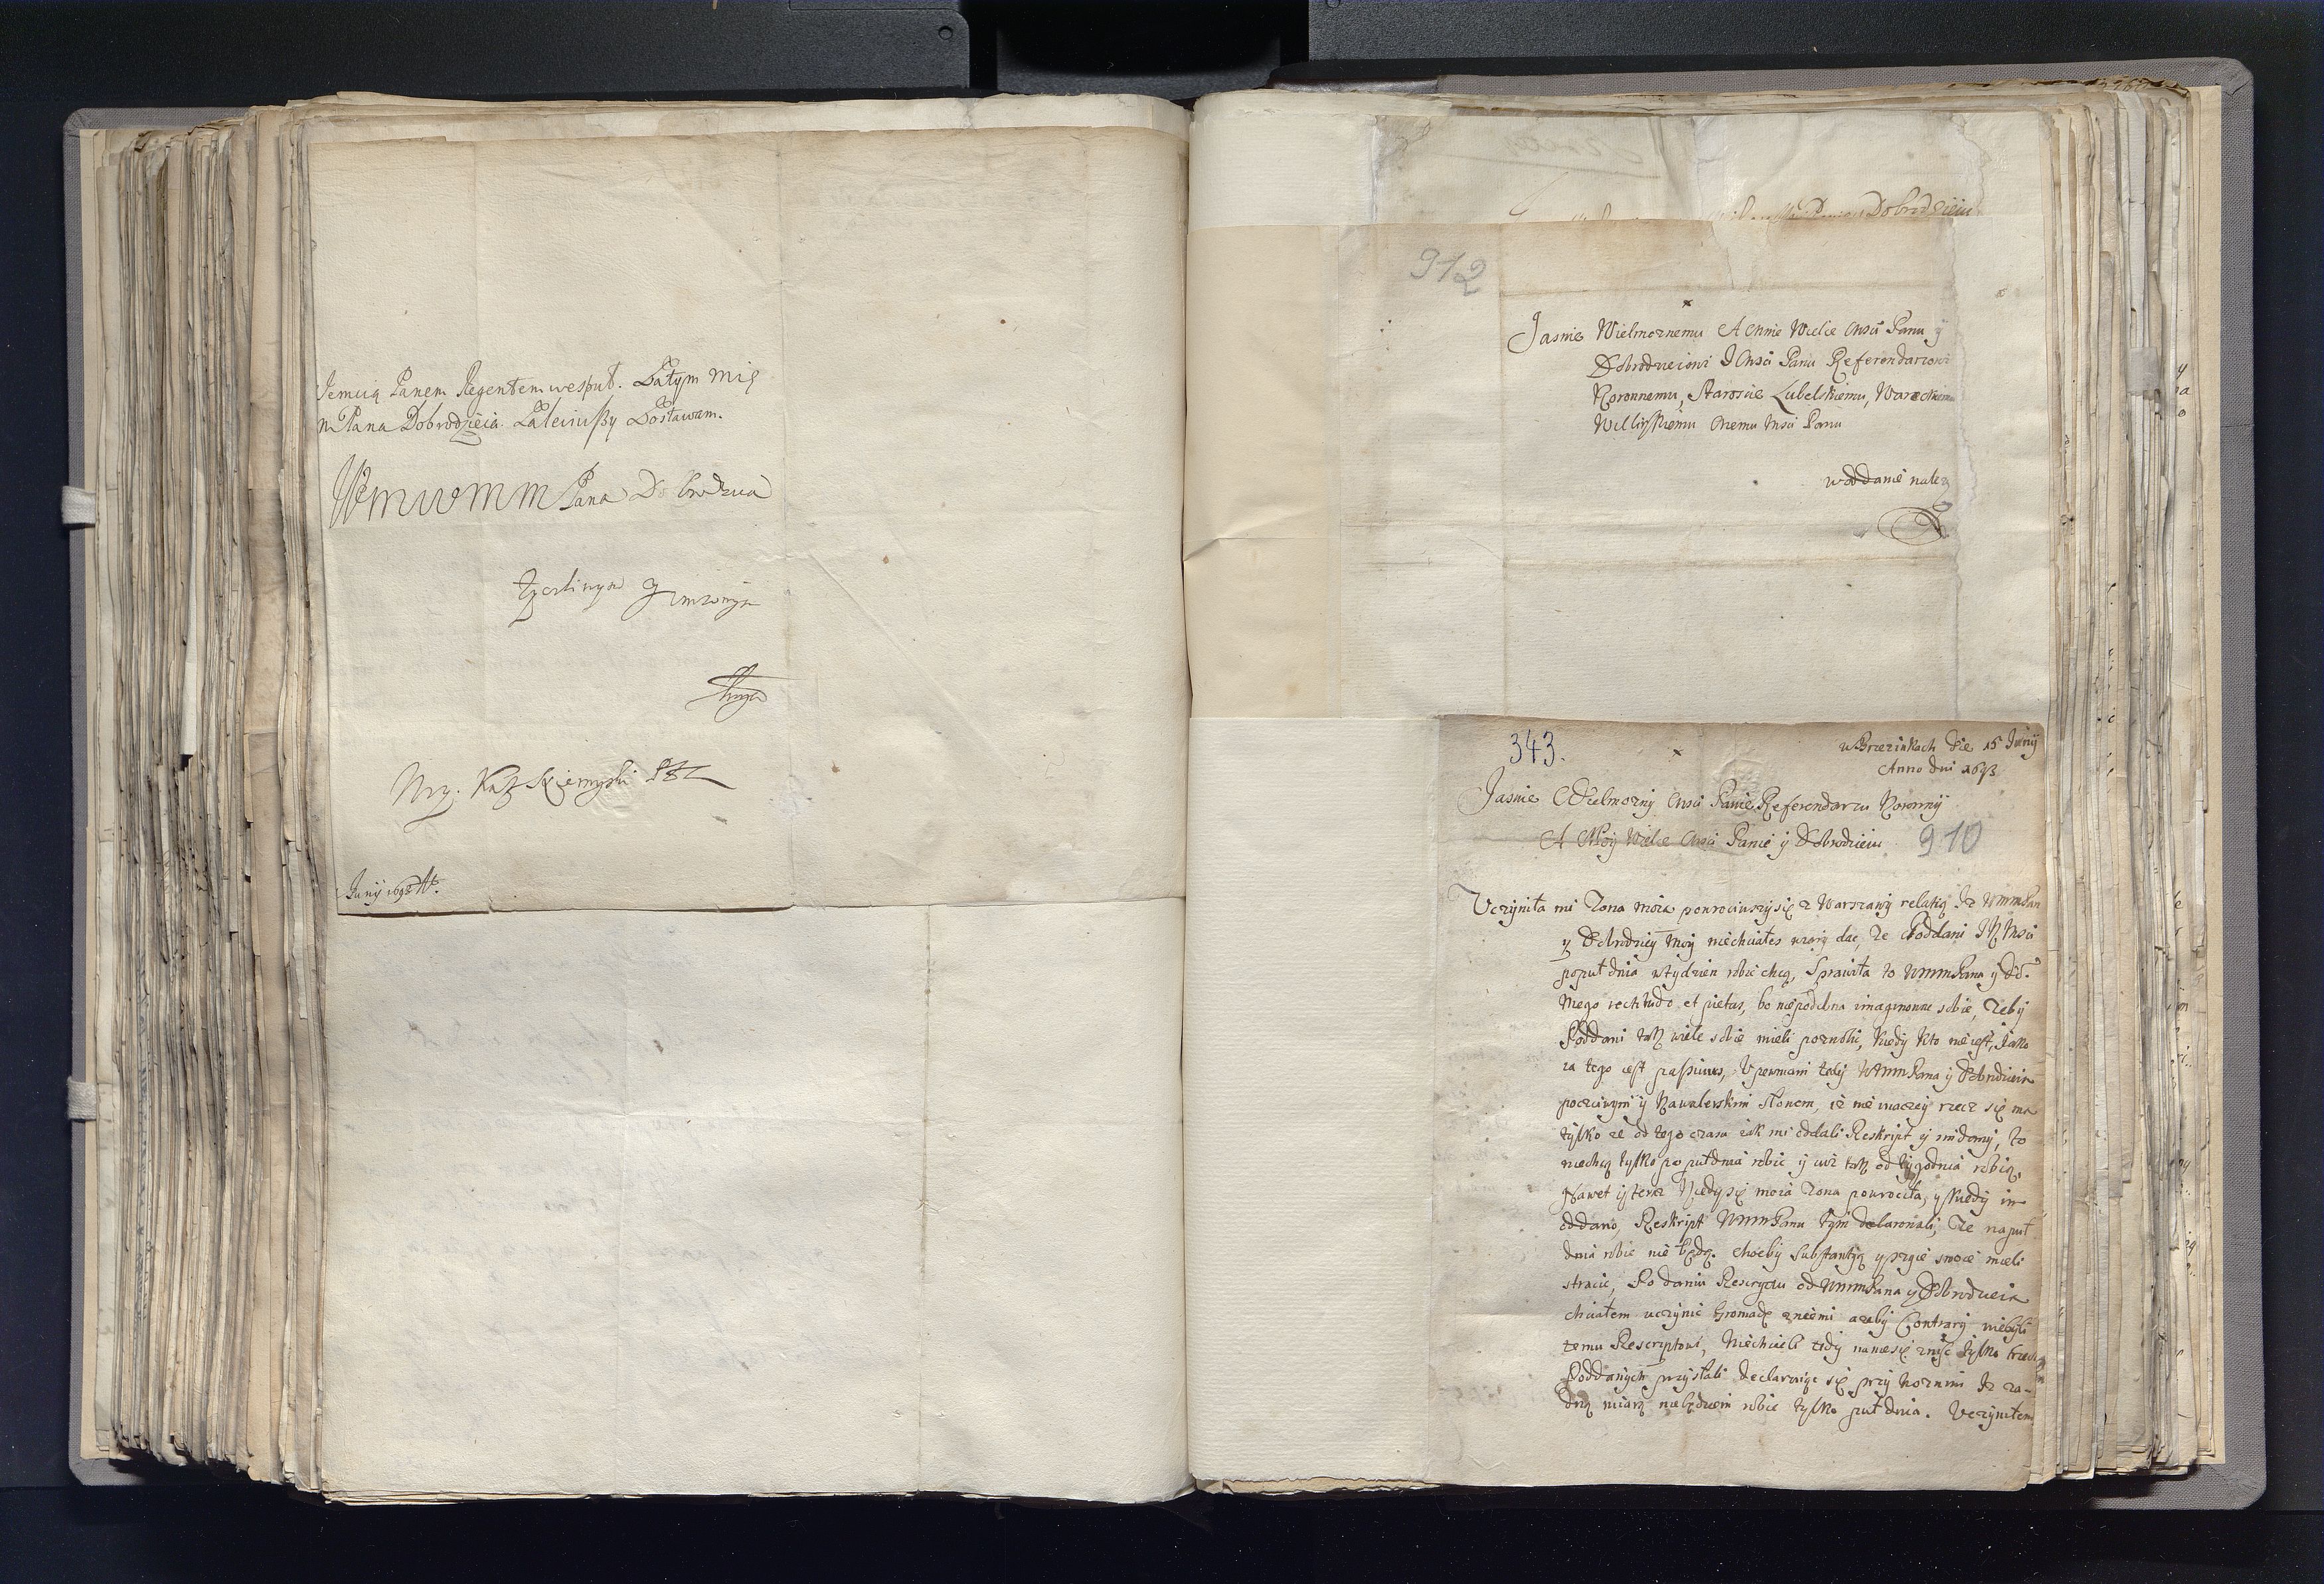 Jemcią Panem Regentem wespuł. Zatym Mię
m Pana Dobrodzieia. Zaleciwszy Zostawam.
Wm m m Pana Dobrodzieia
Życzliwym y
sługą
Juny 1693
Dobrodzieiu
912
Jasnie Wielmoznemu A Mnie Wielce Mści Panu y
Dobrodzieiowi J Mści Panu Referendarzowi
Koronnemu, Staroscie Lubelskiemu, Wareckiemu
memu Mści Panu
w oddanie należy
343.
w Brzezinkach die 15 Juny
Anno Dni 1693
Jasnie Wielmozny Mści Panie Referendarzu Koronny
A Moy Wielce Mści Panie y Dobrodzieiu
910
Uczyniła mi Zona moia powrociwszy się z Warszawy relatią Iz WmmPan
y Dobrodziey moy niechciałes wiary dac, Ze Poddani JK Mści
poput dnia w tydzien robic chcą, Sprawiła to WmmPana y Dd.
mego rectitudo et pietas, bo niepodobna imaginowac sobie, Zeby
Poddani tak wiele sobie mieli pozwolic, kiedy kto nie iest, Iako
za tego iest passiuus, Upewniam tedy WmmPana y Dobrodzieia
poczciwym y Kawalerskim słowem, iż nie inaczey rzecz się ma
tylko ze od tego czasu iak mi oddali Reskript y , to
niechcą tylko po puł dnia robic y iuz tak od tygodnia robią,
Nawet y teraz kiedy się moia Zona powrociła, y kiedy im
oddano, Reskript WmmPana tym delarowali, Ze na puł
dnia robic nie będą. choćby substantyą y zycie swoie mieli
stracic, Po daniu Rescryptu od WmmPana y Dobrodzieia
chciałem uczynic Gromadę zniemi azaby Contrary niebyli
temu Rescriptowi, Niechcieli tedy na nie się zniść tylko trzech
Poddanych przysłali declaruiąc się przy Woznim Iz za-
dną miarą nie będziem robic tylko puł dnia. Uczyniłem